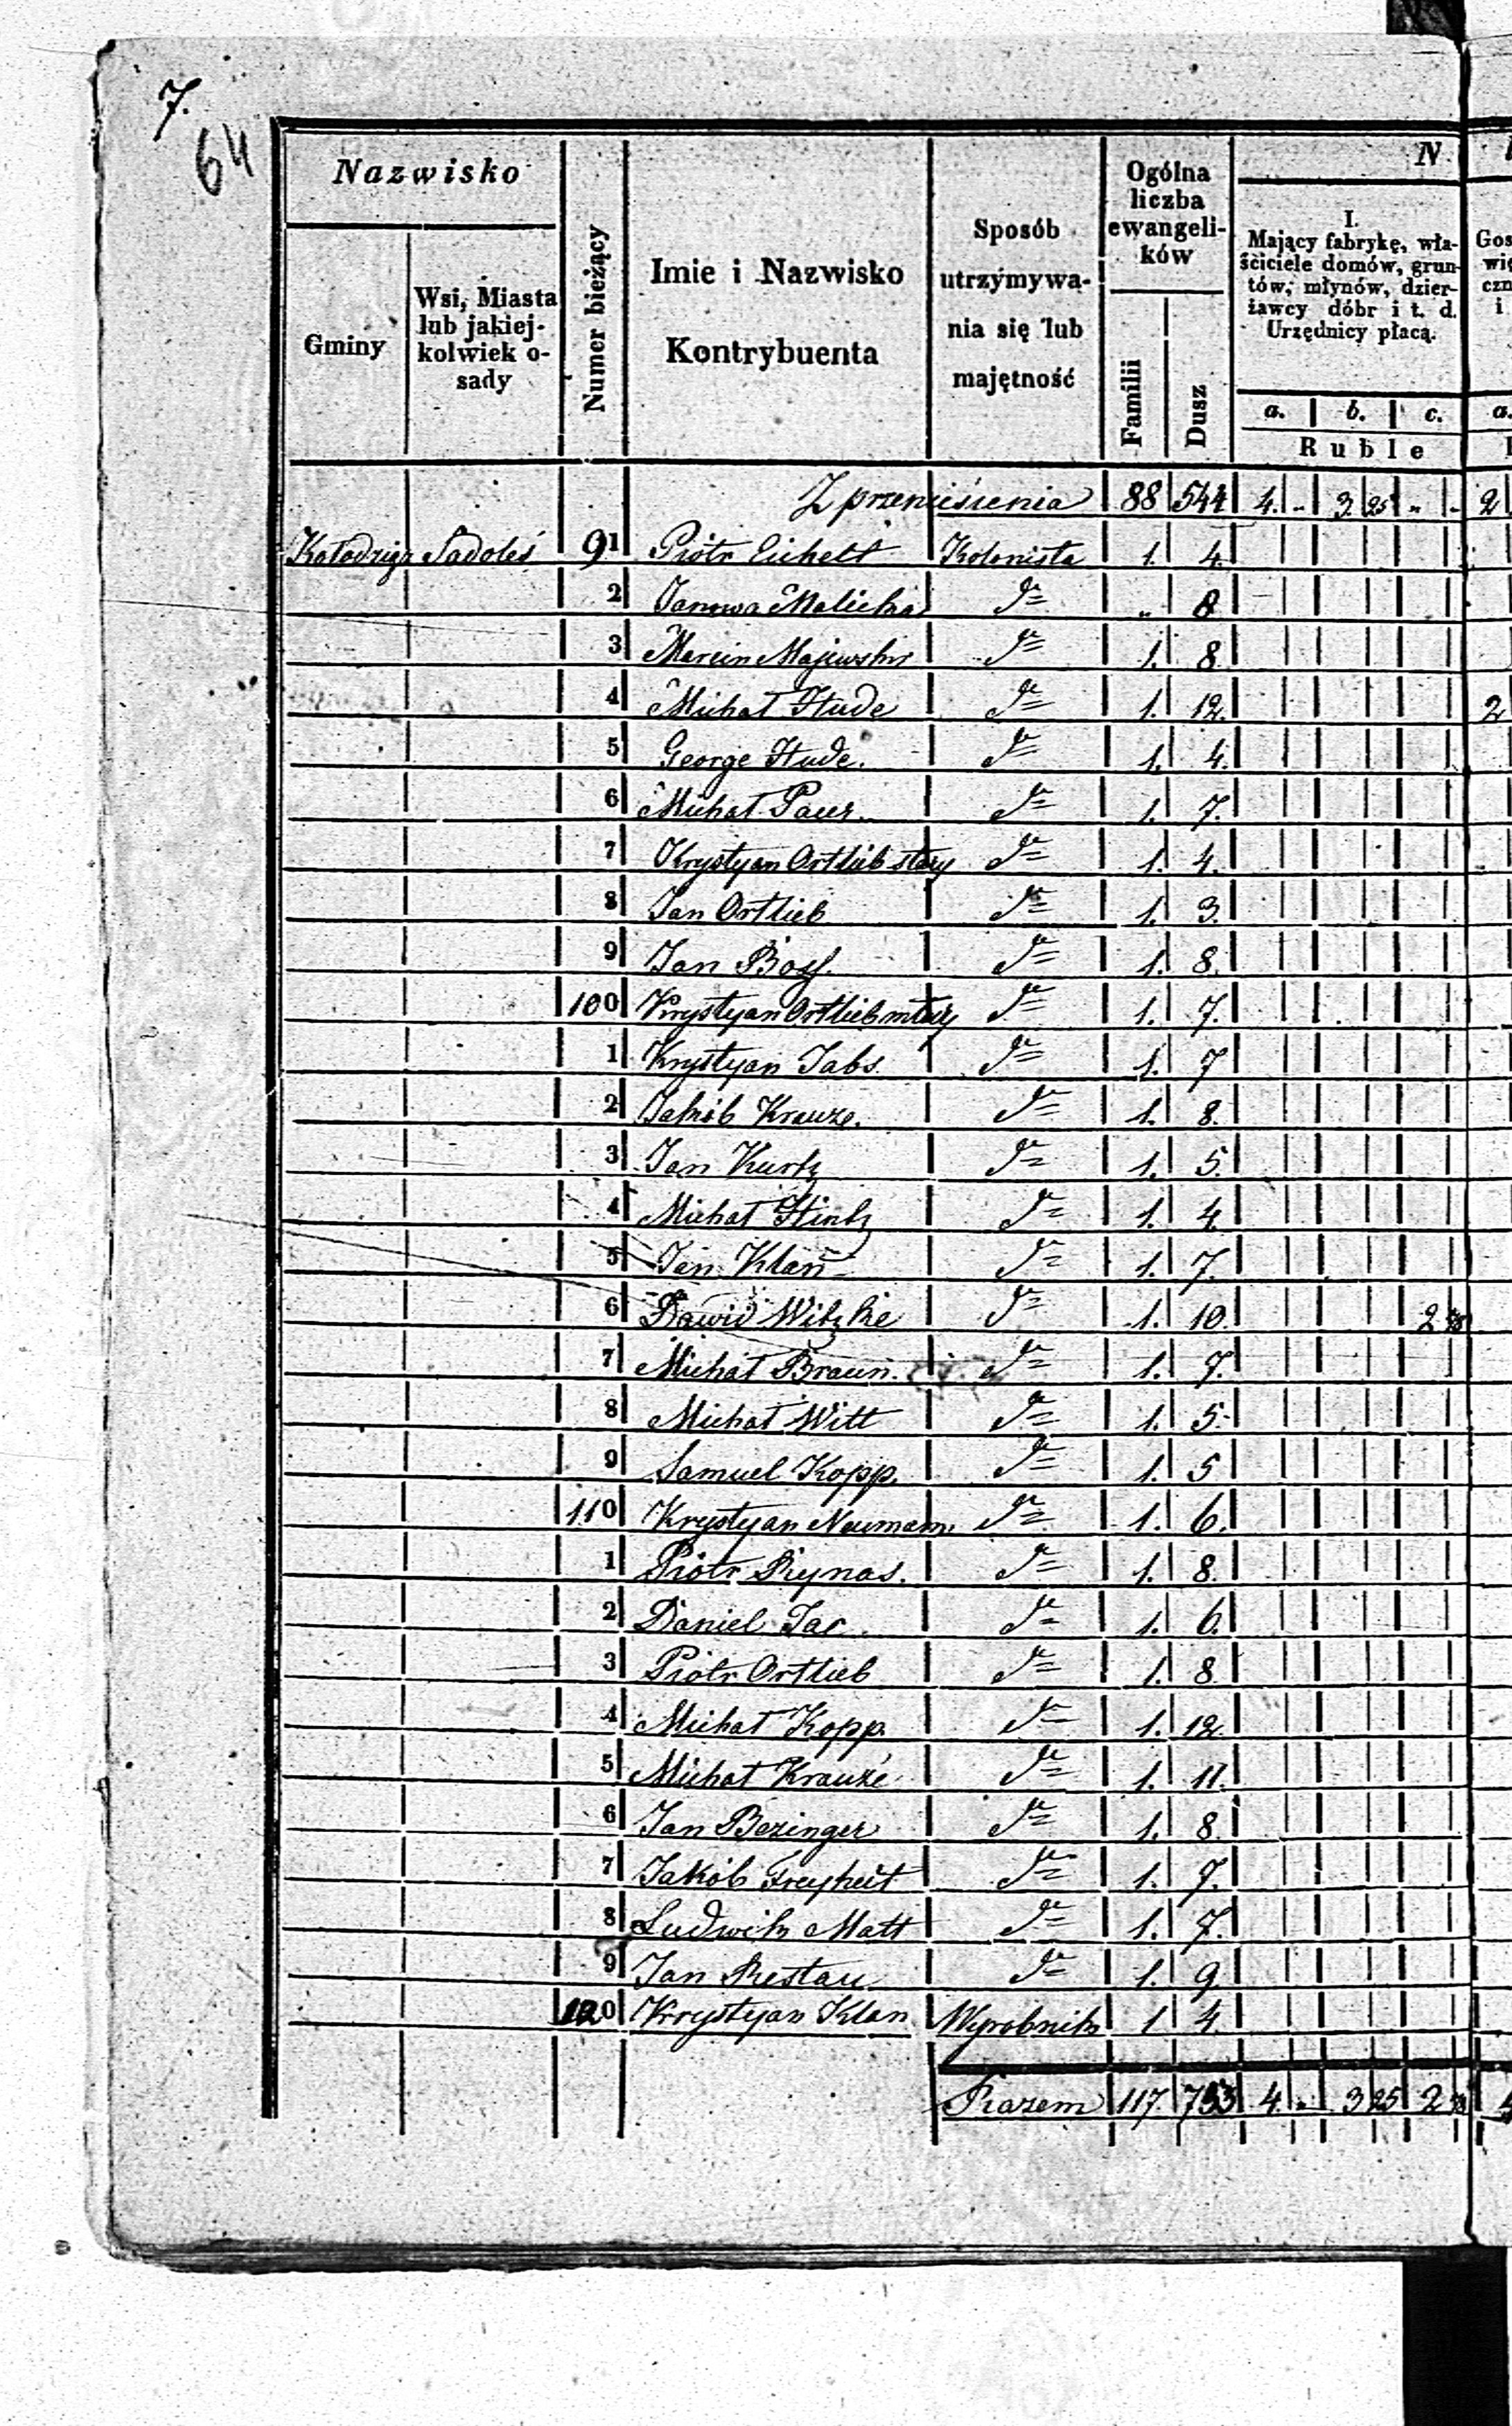 7.
64
Nazwisko
Gminy
Wsi, Miasta lub jakiej-kolwiek o-sady
Numer bieżący
Imie i Nazwisko Kontrybuenta
Sposób utrzymywa-nia się lub majętność
Ogólna liczba ewangeli-ków
Familii
Dusz
N
I.
Mający fabrykę, wła-
ściciele domów, grun-
tów, młynów, dzier-
żawcy dóbr i t. d.
Urzędnicy płacą.
a. b. c.
Ruble
Z przeniesienia 88 544 4. " 3 25 " " 2
Kołodziąż Sadoleś 91 Piotr Eichelt Kolonista 1. 4.
2 Janowa Malicka do " 8
3 Marcin Majewski do 1. 8
4 Michał Hude do 1. 12. 2
5 George Hude. do 1. 4.
6 Michał Paur. do 1. 7.
7 Krystyan Ortlieb stary do 1. 4.
8 Jan Ortlieb do 1. 3.
9 Jan Boss. do 1. 8.
100 Krystyan Ortlieb młody do 1. 7.
1 Krystyan Jabs. do 1. 7
2 Jakób Krauze. do 1. 8.
3 Jan Kurtz do 1. 5.
4 Michał Hintz do 1. 4.
5 Jan Klan do 1. 7.
6 Dawid Witzke do 1. 10. 2
7 Michał Braun. do 1. 7.
8 Michał Witt do 1. 5.
9 Samuel Kopp. do 1. 5
110 Krystyan Neumann do 1. 6.
1 Piotr Rynas. do 1. 8.
2 Daniel Jac. do 1. 6.
3 Piotr Ortlieb do 1. 8
4 Michał Kopp. do 1. 12.
5 Michał Krauze do 1. 11.
6 Jan Bezinger do 1. 8.
7 Jakób Freyheit do 1. 7.
8 Ludwik Matt do 1. 7.
9 Jan Restau do 1. 9.
120 Krystyan Klan Wyrobnik 1 4.
Razem 117. 753 4. " 3 25 2